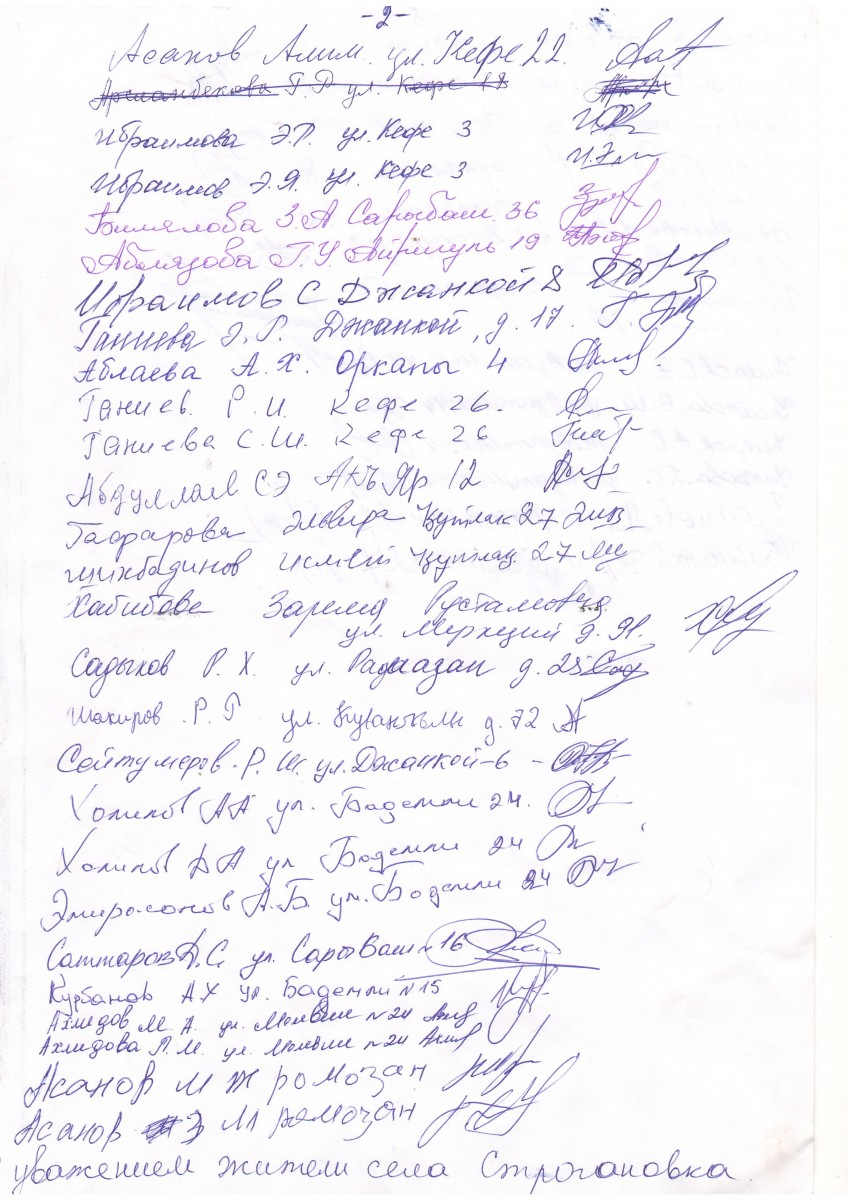 -2-
Асанов Алим ул. Кефе 22.
Арсланбекова Г.Р ул. Кефе 18
Ибраимова Э.Р. ул. Кефе 3
Ибраимов Э.Я. ул. Кефе 3
Билялова З.А. Сарыбаш 36
Аблязова Г.У. 19
Ибраимов С Джанкой 8
Ганиева Э.Р. Джанкой, д. 17.
Аблаева А.Х. Орканы 4
Ганиев. Р.И. Кефе 26.
Ганиева С.Ш. Кефе 26
Абдуллаев СЭ АкъЯр 12
Гафарова Эльвира Кутлак 27
Шихбадинов Исмет Кутлак 27
Хабибова Зарема Рустамовна
ул. д. 91.
Садыков Р.Х. ул. Рамазан д. 25
Шакиров Р.Г ул. д. 72
Сейтумеров Р.Ш. ул. Джанкой-6
Холилов АА ул. Бадемли 24.
Холилов ДА ул Бадемли 24
Эмирасанов А.Б. ул. Бадемли 24
Саттаров Д.С. ул. СарыБаш №16
Курбанов А.Х ул. Бадемли №15
Ахмедов М.А. ул. №24
Ахмедова Л.М. ул. №24
Асанов И Ж ромозан
Асанов З И ромозан
уважением жители села Строгановка.